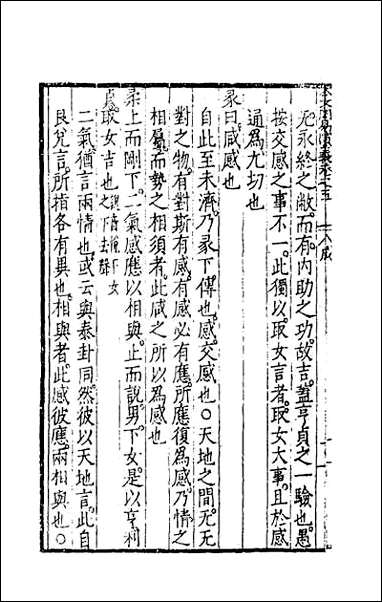 无永終之敝而有內助之功故吉蓋亨貞之一驗也愚
按交感之事不一此獨以取女言者取女大事且於感
通為尤切也
彖曰咸感也
自此至未濟乃彖下傳也感交感也○天地之間无无
對之物有對斯有感有感必有應所應復為感乃情之
相屬而勢之相須者此咸之所以為感也
柔上而剛下二氣感應以相與止而說男下女是以亨利
貞取女吉也
二氣猶言兩情也或云與泰卦同然彼以天地言此自
艮兌言所指各有異也相與者此感彼應兩相與也○